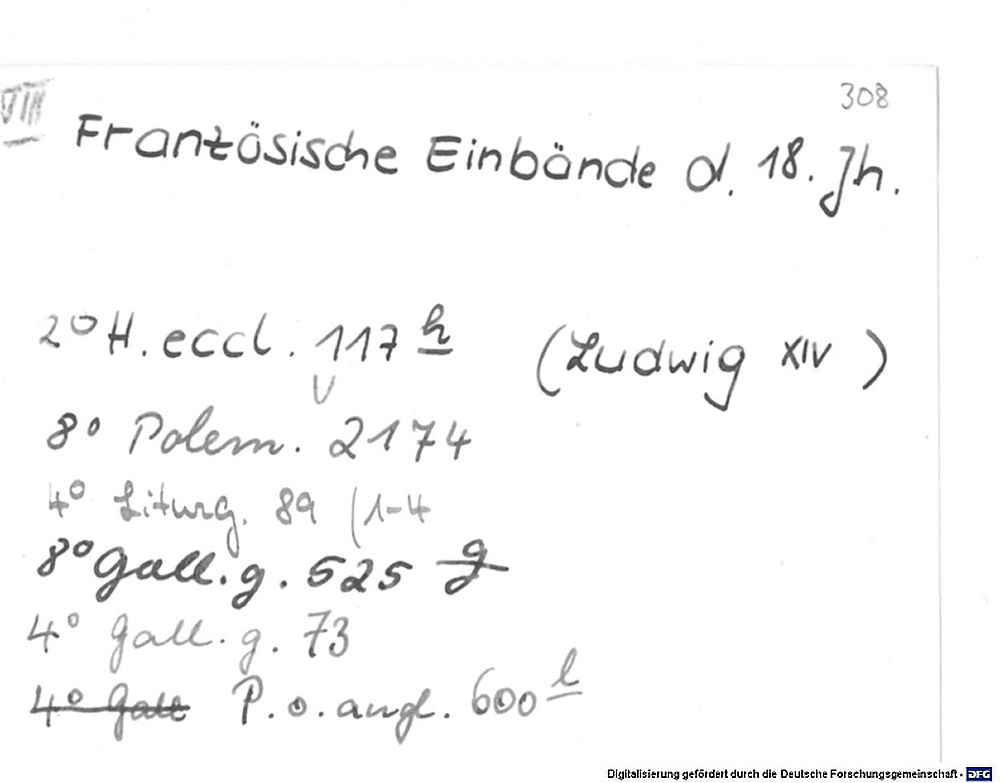 308
VIII Französische Einbände d. 18. Jh.
2° H. eccl. 117 h (Ludwig XIV)
8° Polem. 2174
4° Liturg. 89 (1-4
8° Gall. g. 525 g
4° Gall. g. 73
4° Gall P. o. angl. 600 l
Digitalisierung gefördert durch die Deutsche Forschungsgemeinschaft - DFG